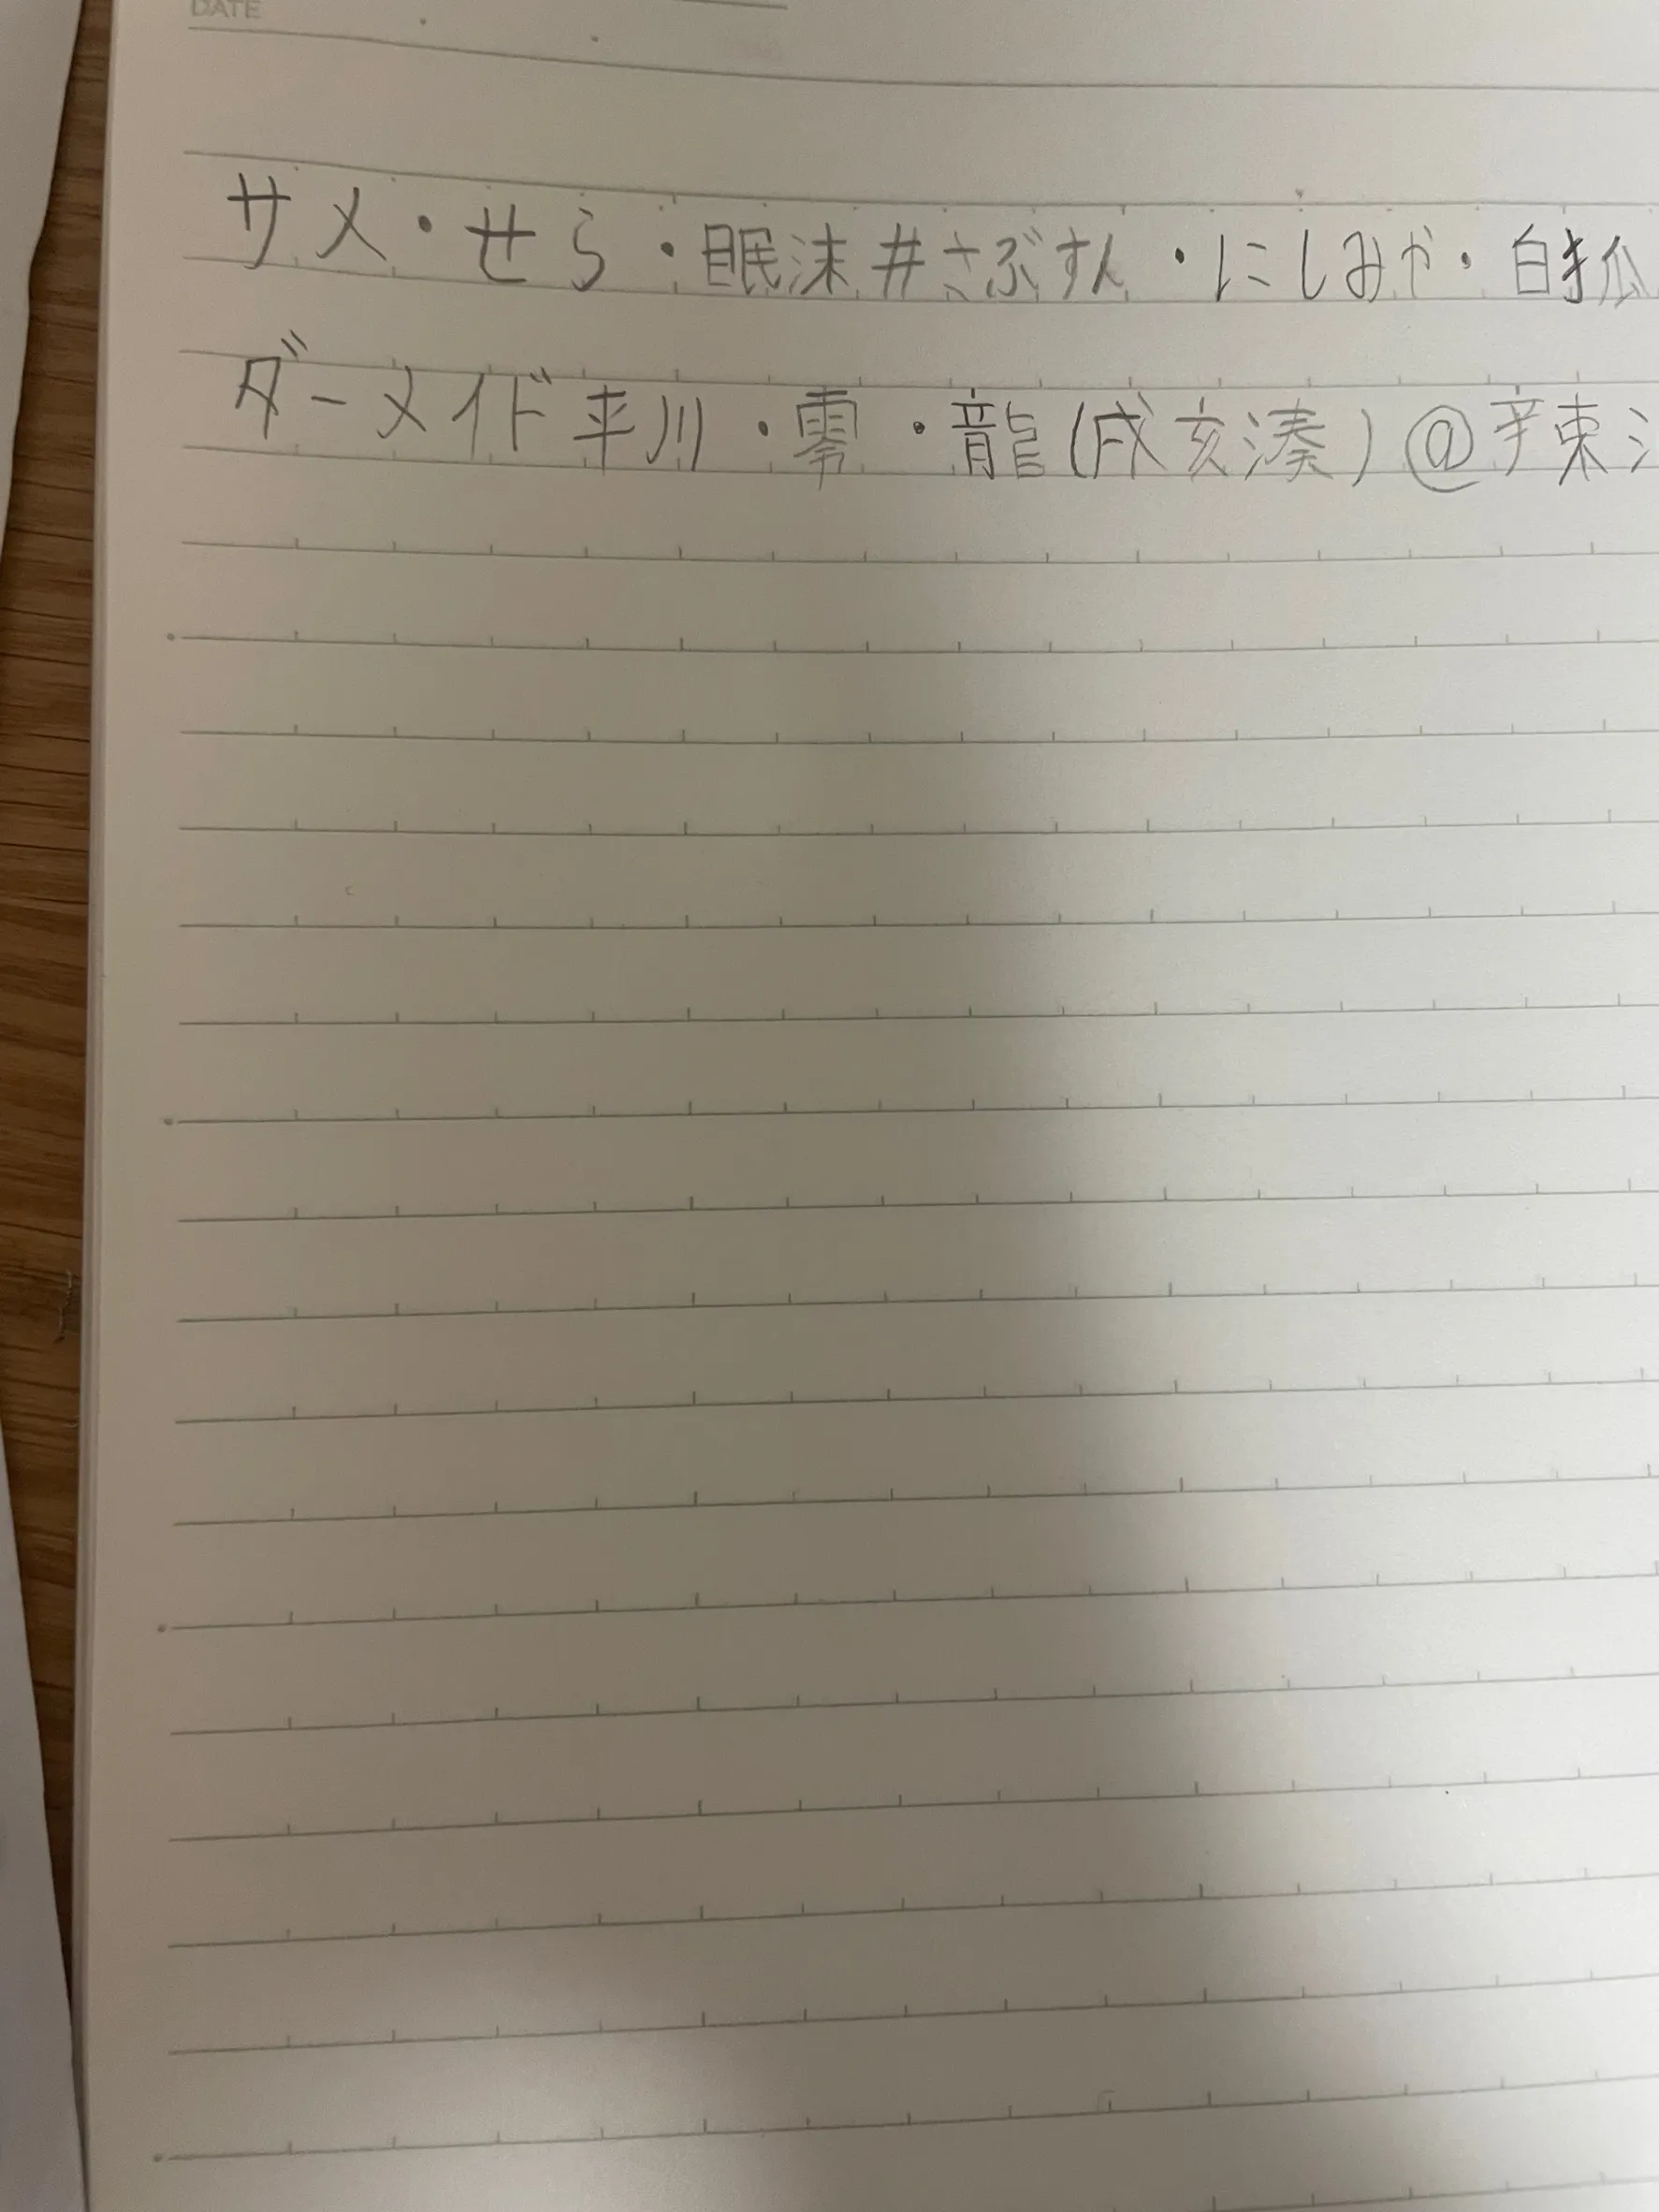 DATE
サメ・せら・眠沫#さぶすん・にしみや・白狐
ダーメイド平川・零・龍(戌亥湊)@辛束